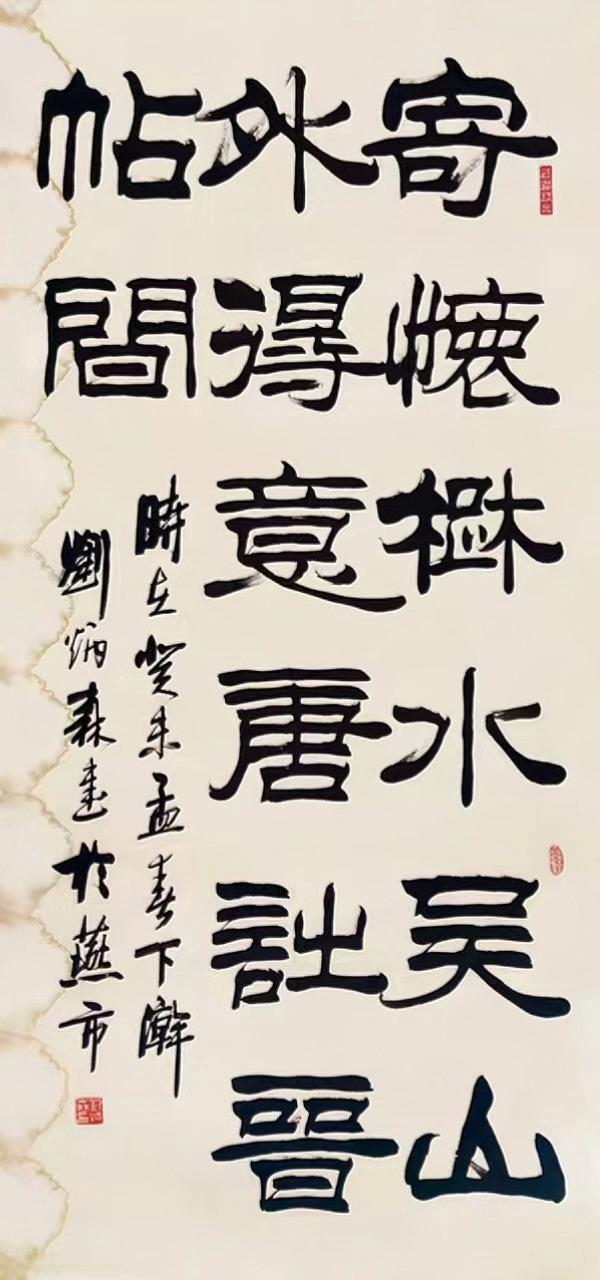 寄懷楚水吳山
外得意唐詩晉
帖間
時在癸未孟春下澣
劉炳森書於燕市